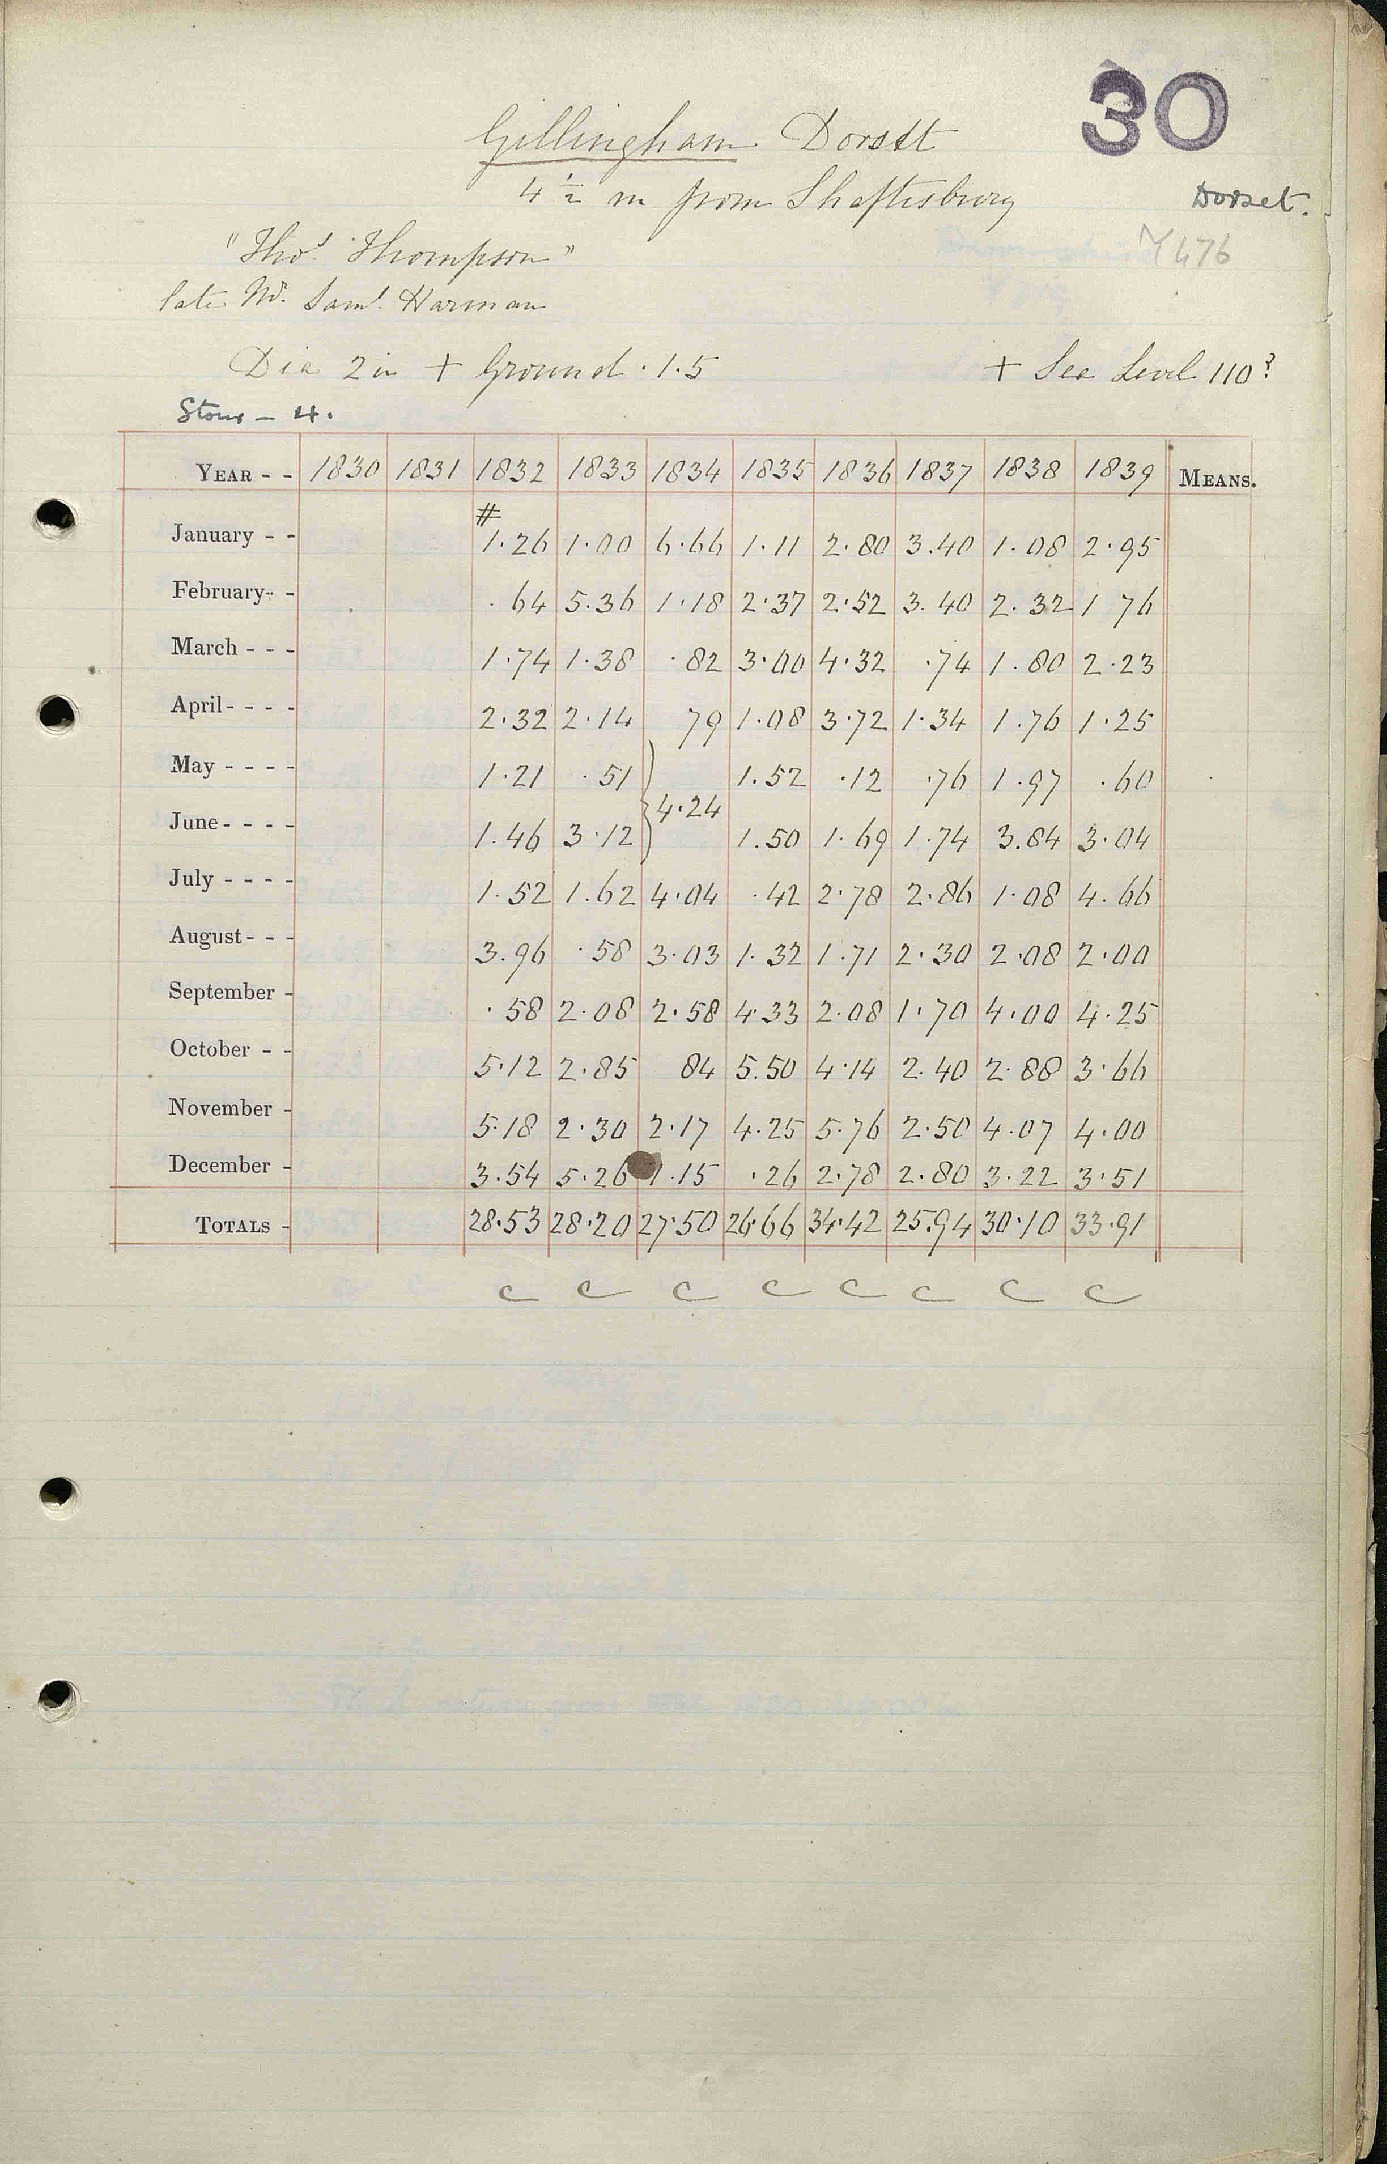 30
Gillingham Dorset
4 1/2 m from Shaftesbury
Dorset.
"Thos. Thompson"
476
late Mr. Saml. Harman
Dia 2 in + Ground · 1·5 + Sea Level 110?
Stour - 4.
YEAR - - 1830 1831 1832 1833 1834 1835 1836 1837 1838 1839 MEANS.
#
January - - 1·26 1·00 6·66 1·11 2·80 3·40 1·08 2·95
February - - ·64 5·36 1·18 2·37 2·52 3·40 2·32 1 76
March - - - 1·74 1·38 ·82 3·00 4·32 ·74 1·80 2·23
April - - - - 2·32 2·14 79 1·08 3·72 1·34 1·76 1·25
May - - - - 1·21 ·51 1·52 ·12 ·76 1·97 ·60
} 4·24
June - - - - 1·46 3·12 1·50 1·69 1·74 3·84 3·04
July - - - - 1·52 1·62 4·04 ·42 2·78 2·86 1·08 4·66
August - - - 3·96 ·58 3·03 1·32 1·71 2·30 2·08 2·00
September - ·58 2·08 2·58 4·33 2·08 1·70 4·00 4·25
October - - 5·12 2·85 84 5·50 4·14 2·40 2·88 3·66
November - 5·18 2·30 2·17 4·25 5·76 2·50 4·07 4·00
December - 3·54 5·26 1·15 ·26 2·78 2·80 3·22 3·51
TOTALS - 28·53 28·20 27·50 26·66 34·42 25·94 30·10 33·91
c c c c c c c c